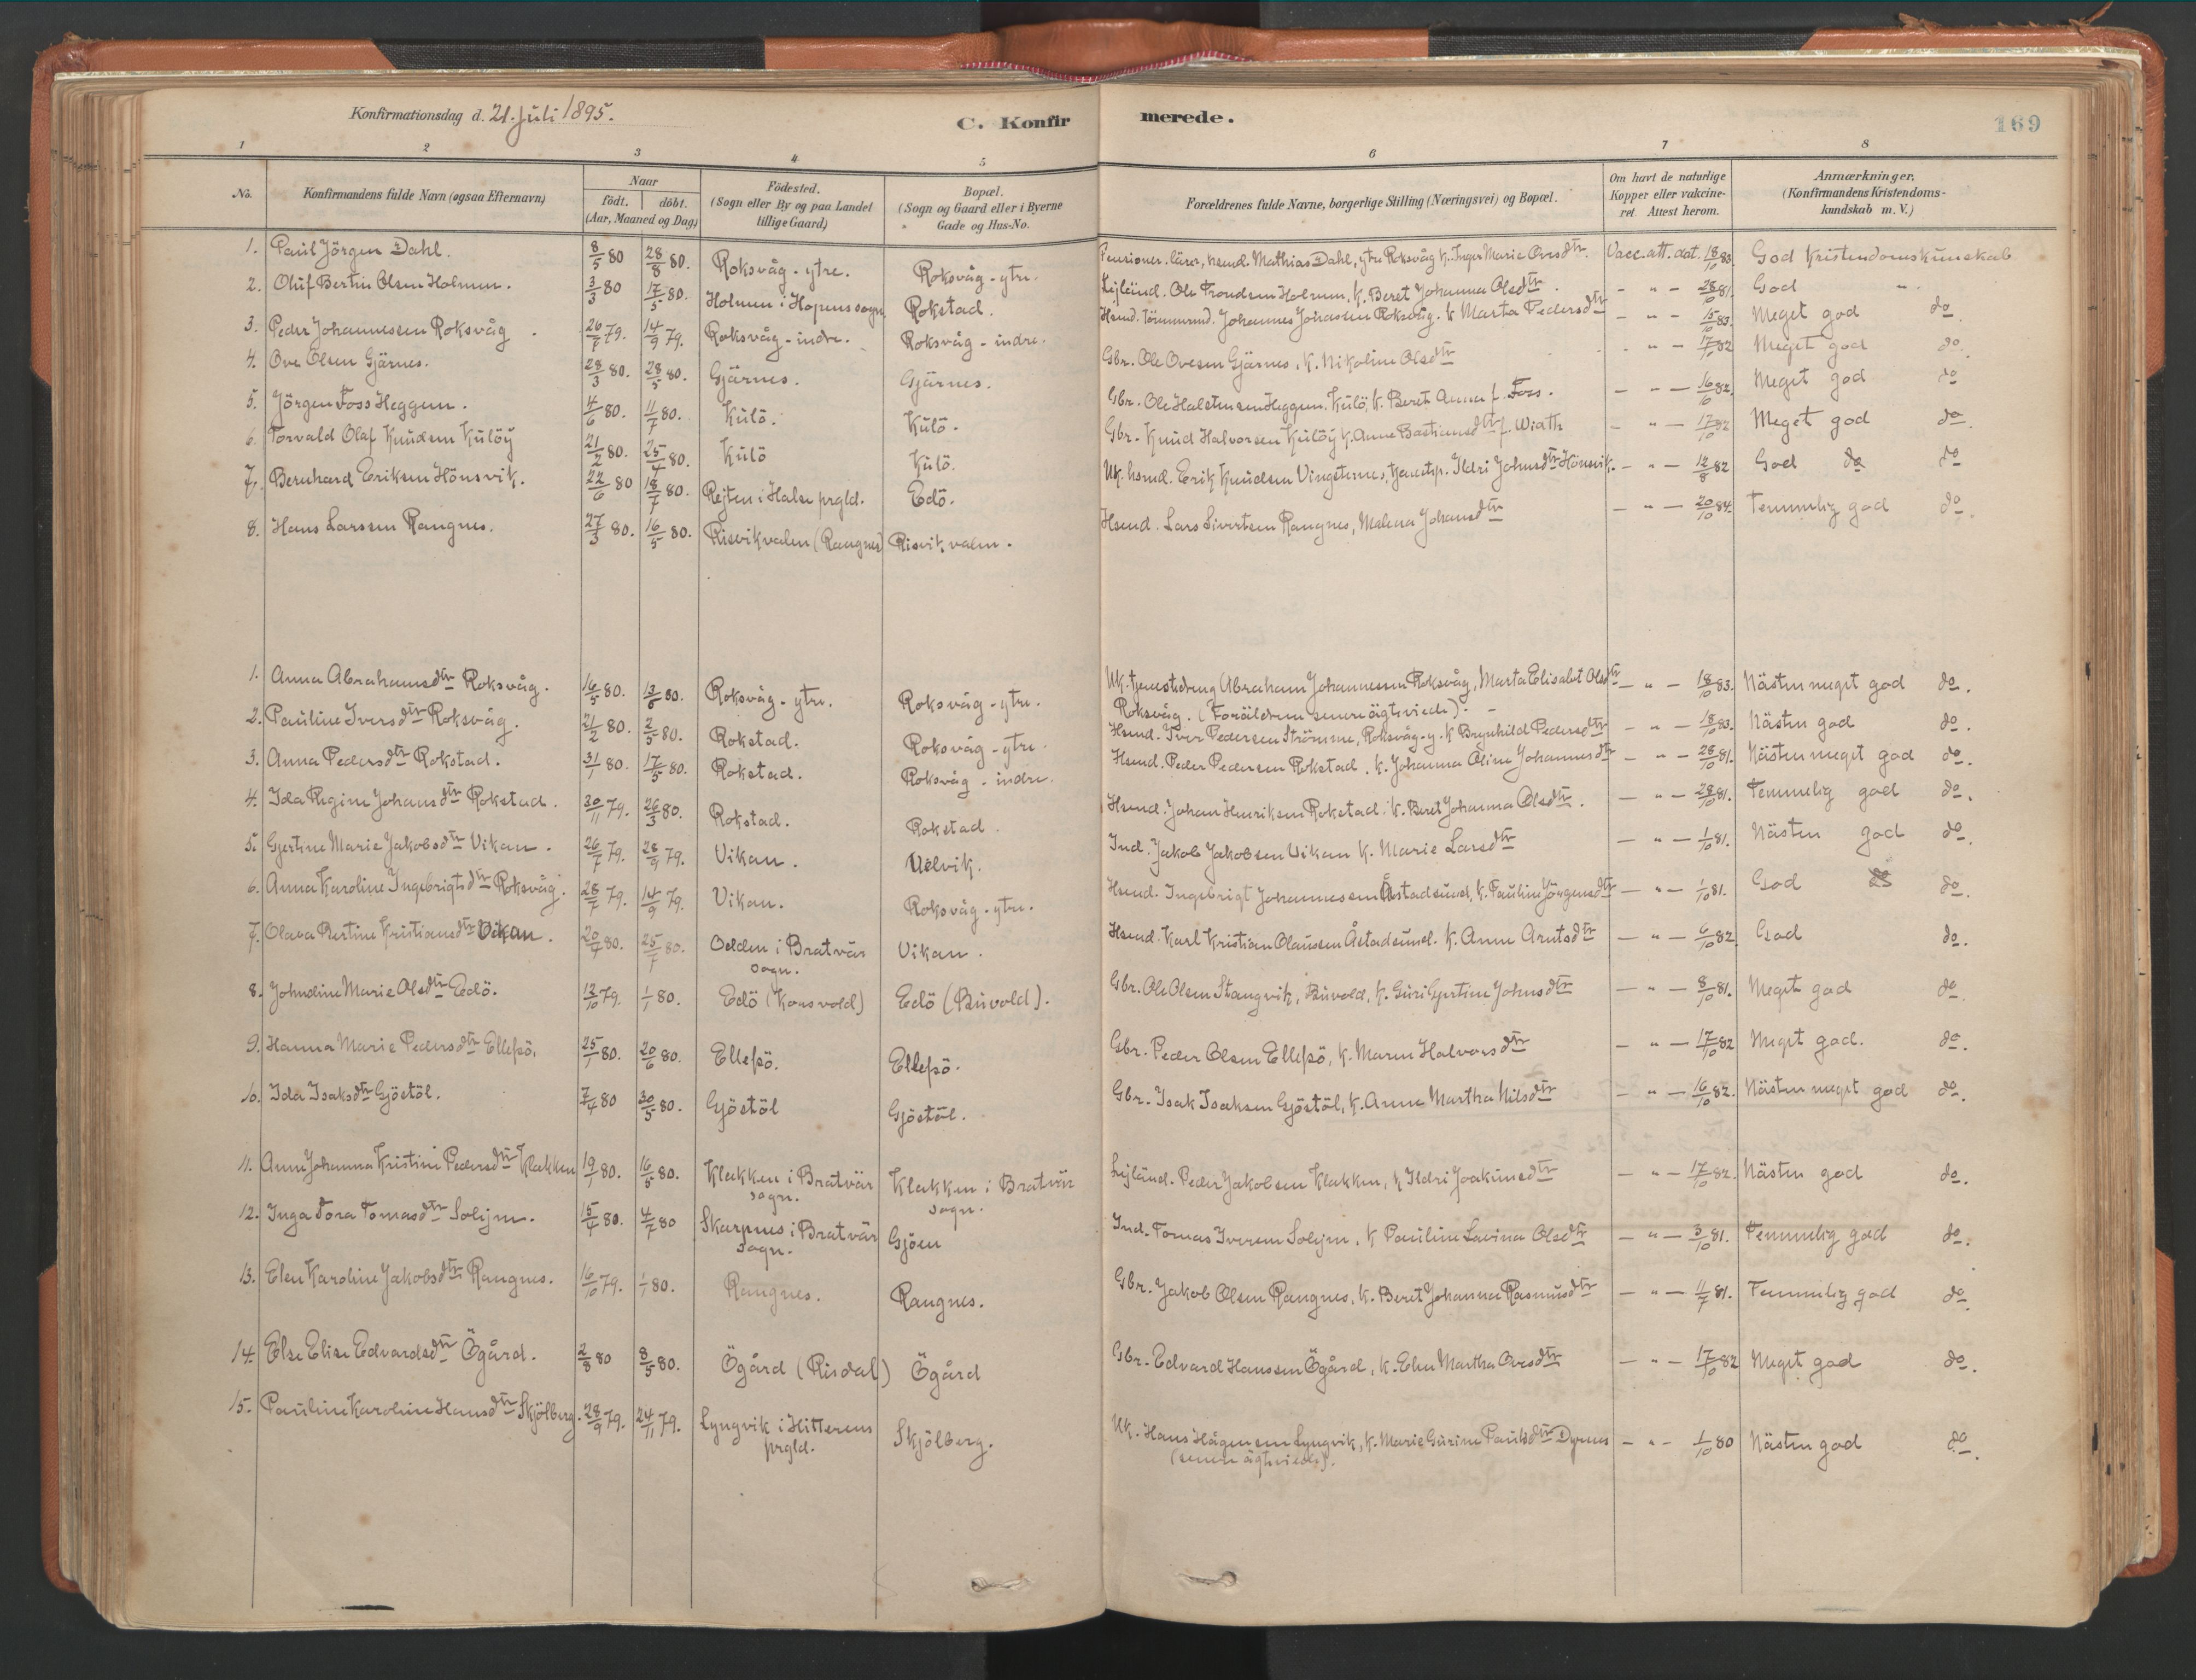 Konfirmationsdag d. 21. Juli 1895.
C. Konfirmerede.
169
1 2 3 4 5 6 7 8
No. Konfirmandens fulde Navn (ogsaa Efternavn) Naar födt. döbt. (Aar, Maaned og Dag) Födested. (Sogn eller By og paa Landet tillige Gaard) Bopæl. (Sogn og Gaard eller i Byerne Gade og Hus-No. Forældrenes fulde Navne, borgerlige Stilling (Næringsvei) og Bopæl. Om havt de naturlige Kopper eller vakcineret. Attest herom. Anmærkninger. (Konfirmandens Kristendomskundskab m. V.)
1. Paul Jörgen Dahl. 8/5 80 28/8 80. Roksvåg - ytre. Roksvåg - ytre. Pensioner. lärer, hsmd. Mathias Dahl, ytre Roksvåg K. Inger Marie Ovesdtr. Vacc. att. dat. 18/10 83. God Kristendomskunskab
2. Oluf Bertin Olsen Holmen. 3/3 80 17/5 80. Holmen i Hopens sogn Rokstad. Lejländ. Ole Trondsen Holmen, K. Beret Johanna Olsdtr. - " - 28/10 81. God "
3. Peder Johannessen Roksvåg. 26/7 79. 14/9 79. Roksvåg - indre. Roksvåg - indre. Hsmd. Tömmermd. Johannes Johassen Roksvåg. K Marta Pedersdtr - " - 15/10 83. Meget god do.
4. Ove Olsen Gjärnes. 28/3 80. 28/5 80. Gjärnes. Gjärnes. Gbr. Ole Ovesen Gjärnes, K. Nikoline Olsdtr - " - 17/10 82 Meget god do.
5. Jörgen Foss Heggem. 4/6 80. 11/7 80. Kulö. Kulö. Gbr. Ole Halstensen Heggem. Kulö, K. Beret Anna f. Foss. - " - 16/6 82. Meget god do
6. Torvald Olaf Knudsen Kulöy 21/2 80. 25/4 80. Kulö Kulö. Gbr. Knud Halvorsen Kulöy K. Anne Bastiansdtr f. Wiath - " - 17/10 82 Meget god do.
7. Bernhard Eriksen Hönsvik. 22/6 80 18/7 80. Rejten i Halse prgld. Edö. Uk. hsmd. Erik Knudsen Vingsternes, tjenestp. Ildri Johnsdtr Hönsvik. - " - 12/8 82 God do do
8. Hans Larssen Rangnes. 27/3 80. 16/5 80. Risvikvalen (Rangnes) Risvikvalen. Hsmd. Lars Sivertsen Rangnes, Malena Johansdtr - " - 20/10 84. Temmelig god do.
1. Anna Abrahamsdtr Roksvåg. 16/5 80. 13/8 80. Roksvåg - ytre. Roksvåg - ytre. Uk. tjenestedreng Abraham Johannessen Roksvåg, Marta Elisabet Olsdtr - " - 18/10 83. Nästen meget god do.
Roksvåg. (Foräldrene senere ägteviede).
2. Pauline Iversdtr Roksvåg. 21/2 80. 2/5 80. Rokstad. Roksvåg - ytre. Hsmd. Iver Pedersen Strömme, Roksvåg - y. K Brynhild Pedersdtr - " - 18/10 83. Nästen god do.
3. Anna Pedersdtr Rokstad. 31/1 80. 17/5 80. Rokstad. Roksvåg - indre. Hsmd. Peder Pedersen Rokstad. K. Johanna Oline Johannesdtr - " - 28/10 81. Nästen meget god do.
4. Ida Regine Johansdtr Rokstad. 30/11 79. 26/3 80. Rokstad. Rokstad. Hsmd. Johan Henriksen Rokstad. K. Beret Johanna Olsdtr. - " - 28/10 81. Temmelig god do.
5. Gjertine Marie Jakobsdtr Vikan. 26/7 79. 28/9 79. Vikan. Uelvik. Ind. Jakob Jakobsen Vikan K. Marie Larsdtr - " - 1/10 81. Nästen god do.
6. Anna Karoline Ingebrigtsdtr Roksvåg. 28/7 79. 14/9 79. Vikan. Roksvåg - ytre. Hsmd. Ingebrigt Johannessen Åstadsund, K. Pauline Jörgensdtr - " - 1/10 81. God do.
7. Olava Bertine Kristiansdtr Vikan. 20/4 80. 25/7 80. Odden i Bratvär sogn. Vikan. Hsmd. Karl Kristian Olaussen Åstadsund. K. Anne Arntsdtr - " - 6/10 82. God do.
8. Johndine Marie Olsdtr Edö. 12/10 79. 1/1 80. Edö (Korsvold) Edö (Buvold). Gbr. Ole Olsen Stangvik, Buvold, K. Guri Gjertine Johnsdtr - " - 8/10 81. Meget god do.
9. Hanna Marie Pedersdtr Ellefsö. 25/1 80. 20/6 80. Ellefsö. Ellefsö. Gbr. Peder Olsen Ellefsö, K. Maren Halvorsdtr - " - 17/10 82 Meget god. do.
10. Ida Isaksdtr Gjöstöl. 7/4 80 30/5 80. Gjöstöl Gjöstöl. Gbr. Isak Isaksen Gjöstöl, K. Anne Martha Nilsdtr - " - 16/10 82. Nästen meget god do.
11. Anne Johanna Kristine Pedersdtr Klakken 19/1 80. 16/5 80. Klakken i Bratvär sogn. Klakken i Bratvär sogn. Lejländ. Peder Jakobsen Klakken, K Ildri Joakimsdtr - " - 17/10 82. Nästen god do.
12. Inga Tora Tomasdtr Solijm. 15/4 80. 4/7 80 Skarpnes i Bratvär sogn. Gjöen Ind. Tomas Iversen Solijm, K Pauline Lavina Olsdtr - " - 3/10 81. Temmelig god do.
13. Elen Karoline Jakobsdtr Rangnes. 16/10 79. 1/1 80. Rangnes. Rangnes. Gbr. Jakob Olsen Rangnes, K. Beret Johanna Rasmusdtr - " - 11/7 81. Temmelig god do.
14. Else Elise Edvardsdtr Ögård. 2/8 80 8/5 80. Ögård (Risdal) Ögård Gbr. Edvard Hanssen Ögård, K. Elen Martha Ovesdtr - " - 17/10 82 Meget god do.
15. Pauline Karoline Hansdtr Skjölberg. 28/9 79. 24/11 79. Lyngvik i Hitterens prgld. Skjölberg. Uk. Hans Hågensen Lyngvik, K. Marie Gurine Paulsdtr Dyrnes - " - 1/10 80 Nästen god do.
(senere ägteviede).